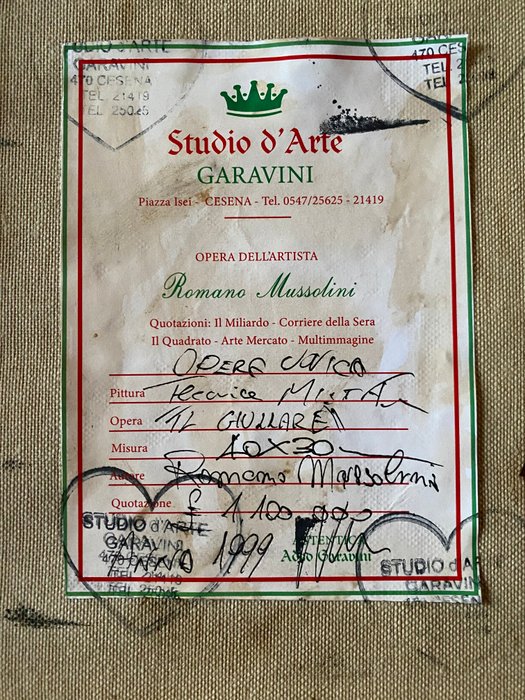 STUDIO d'ARTE
GARAVINI
470 CESENA
TEL 21419
TEL
470 CES
TEL
TEL
Studio d'Arte
GARAVINI
Piazza Isei - CESENA - Tel. 0547/25625 - 21419
OPERA DELL'ARTISTA
Romano Mussolini
Quotazioni: Il Miliardo - Corriere della Sera
Il Quadrato - Arte Mercato - Multimmagine
OPERA UNICA
Pittura Tecnica MistA
Opera IL GIULLARE
Misura 40x30
Autore Romano Mussolini
Quotazione £ 1 100 000
1999
AUTENTICA
Garavini
STUDIO d'ARTE
GARAVINI
STUDIO d'AR
GARAVINI